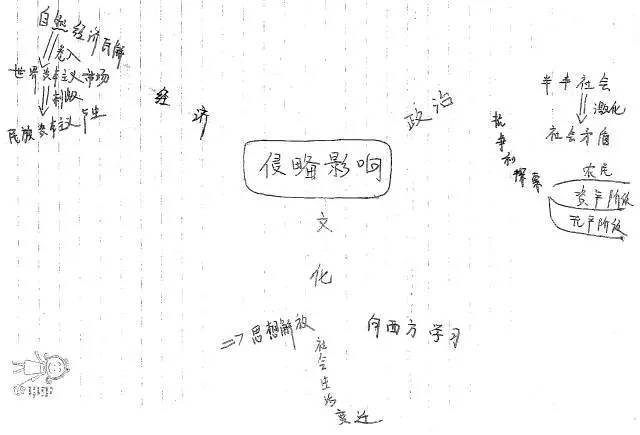 自然经济瓦解
卷入
世界资本主义市场
刺激
民族资本主义产生
经济
政治
半半社会
激化
社会矛盾
抗争和探索
农民
资产阶级
无产阶级
侵略影响
文化
=> 思想解放
向西方学习
社会生活变迁